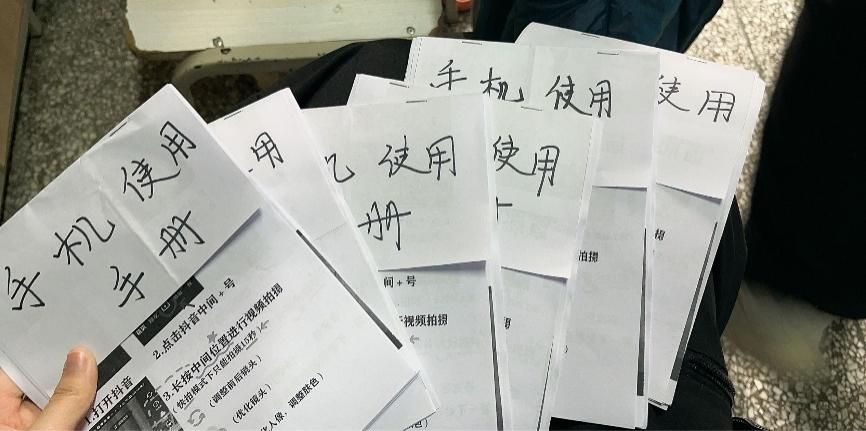 手机使用
手册
1.打开抖音
2.点击抖音中间+号
3.长按中间位置进行视频拍摄
(快拍模式下只能拍摄15秒)
(调整前后镜头)
(优化镜头)
化人像、调整肤色)
用
机 使用
册
间+号
行视频拍摄
使用
手机 使用
拍摄
使用
册
拍摄